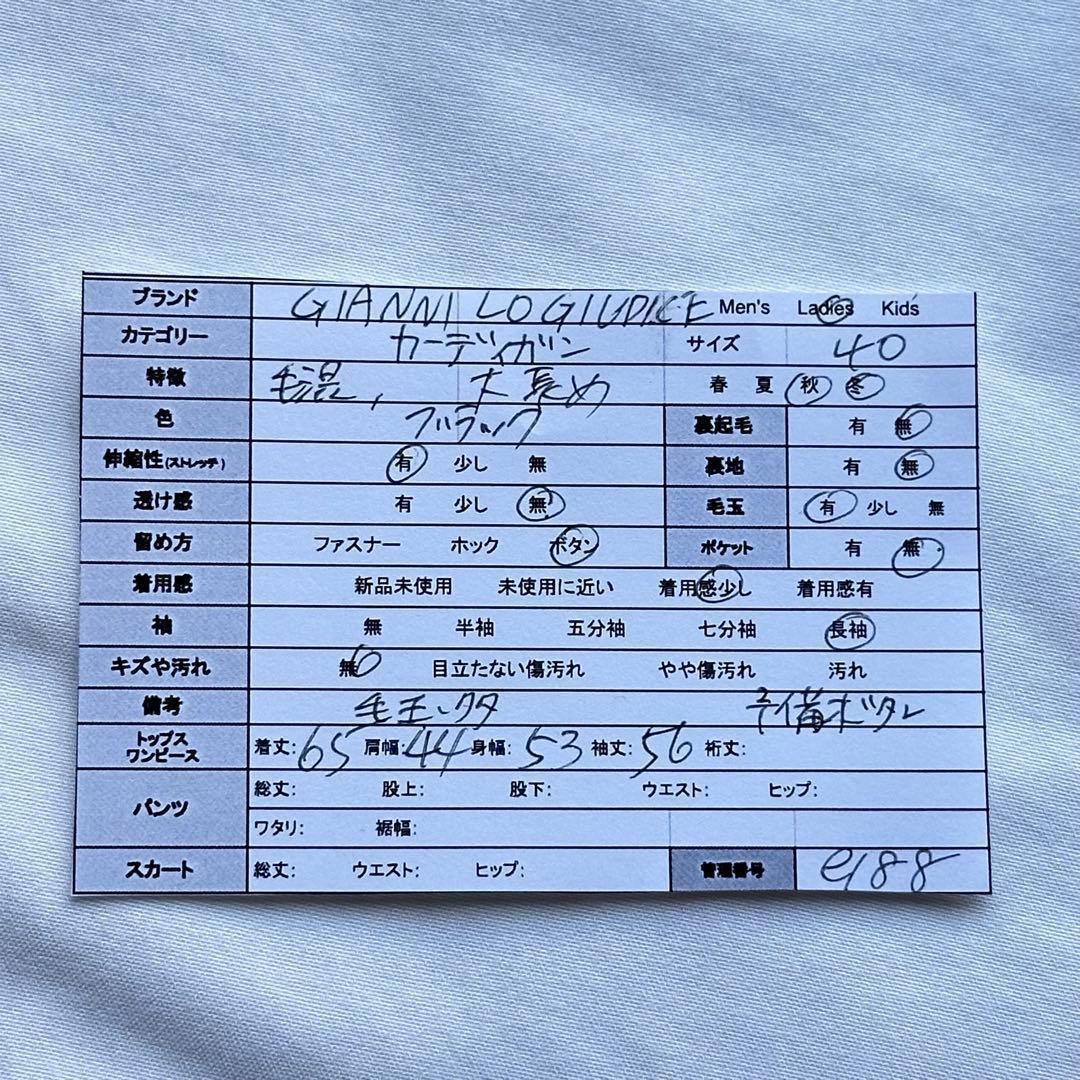 ブランド GIANNI LO GIUDICE Men's Ladies Kids
カテゴリー カーディガン サイズ 40
特徴 毛混, 丈長め 春 夏 秋 冬
色 ブラック 裏起毛 有 無
伸縮性(ストレッチ) 有 少し 無 裏地 有 無
透け感 有 少し 無 毛玉 有 少し 無
留め方 ファスナー ホック ボタン ポケット 有 無
着用感 新品未使用 未使用に近い 着用感少し 着用感有
袖 無 半袖 五分袖 七分袖 長袖
キズや汚れ 無 目立たない傷汚れ やや傷汚れ 汚れ
備考 毛玉 予備ボタン
トップス
ワンピース 着丈:65 肩幅:44 身幅:53 袖丈:56 裄丈:
パンツ 総丈: 股上: 股下: ウエスト: ヒップ:
ワタリ: 裾幅:
スカート 総丈: ウエスト: ヒップ: 管理番号 e188